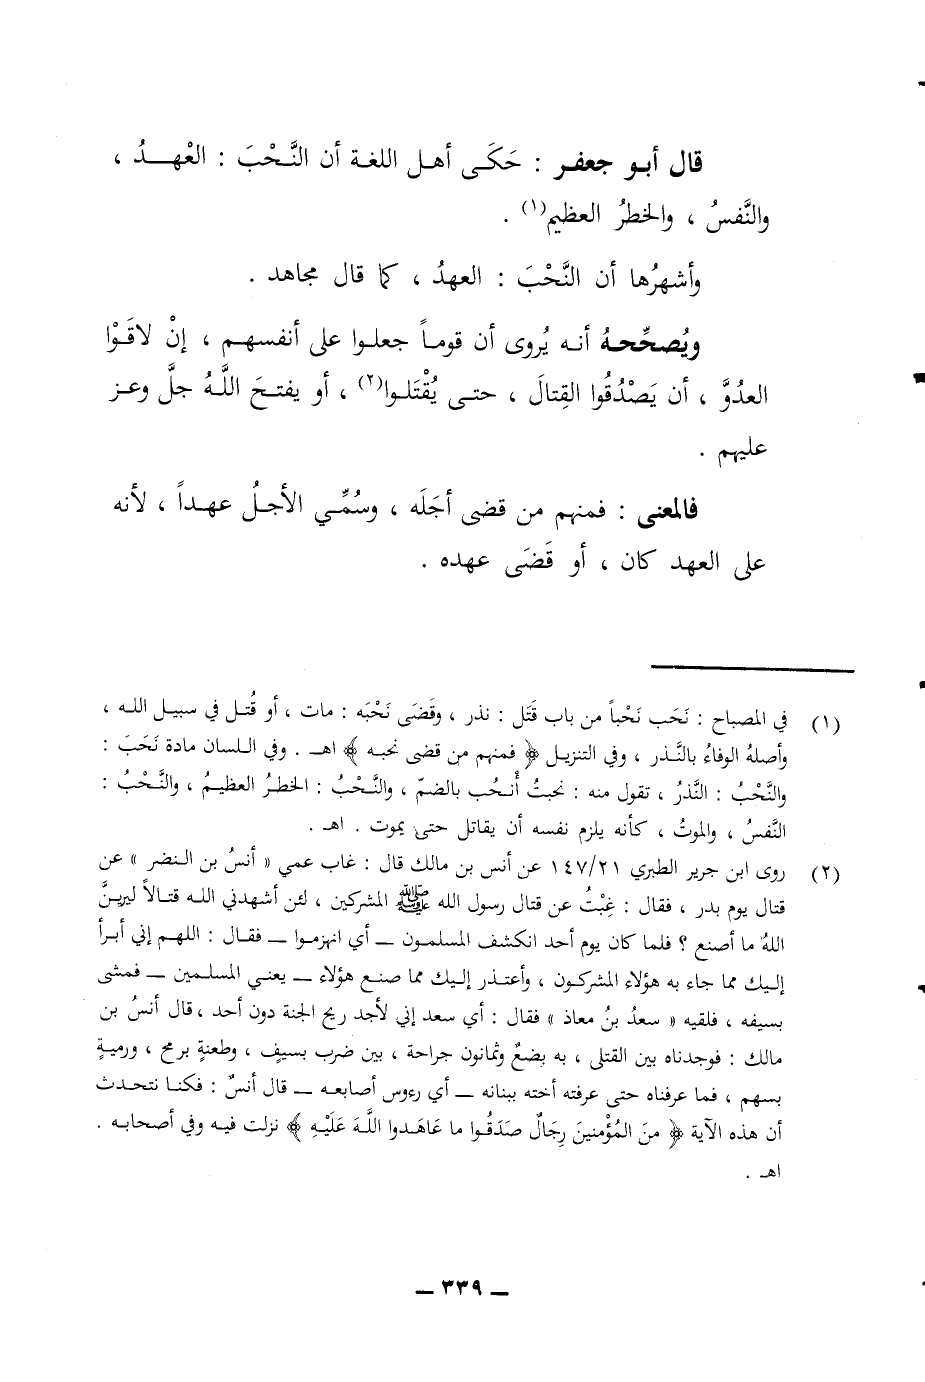 قال أبو جعفر : حَكَى أهل اللغة أن النَّحْبَ : العْهدُ ،
والنَّفسُ ، والخطرُ العظيم(١) .
وأشهرُها أن النَّحْبَ : العهدُ ، كما قال مجاهد .
ويُصحِّحهُ أنه يُروى أن قوماً جعلوا على أنفسهم ، إنْ لاقَوْا
العدُوَّ ، أن يَصْدُقُوا القِتالَ ، حتى يُقْتَلوا(٢) ، أو يفتحَ اللَّهُ جلَّ وعز
عليهم .
فالمعنى : فمنهم من قضى أجَلَه ، وسُمِّي الأجلُ عهداً ، لأنه
على العهد كان ، أو قَضَى عهده .
(١) في المصباح : نَحَب نَحْباً من باب قَتَل : نذر ، وقَضَى نَحْبَه : مات ، أو قُتل في سبيل الله ،
وأصلهُ الوفاءُ بالنَّذر ، وفي التنزيل ﴿ فمنهم من قضى نحبه ﴾ اهـ . وفي اللسان مادة نَحَبَ :
والنَّحْبُ : النَّذرُ ، تقول منه : نحبتُ أُنحُب بالضمّ ، والنَّحْبُ : الخطرُ العظيمُ ، والنَّحْبُ :
النَّفسُ ، والموتُ ، كأنه يلزم نفسه أن يقاتل حتى يموت . اهـ .
(٢) روى ابن جرير الطبري ١٤٧/٢١ عن أنس بن مالك قال : غاب عمي « أنسُ بن النضر » عن
قتال يوم بدر ، فقال : غِبْتُ عن قتال رسول الله ﷺ المشركين ، لئن أشهدني الله قتالاً ليرينَّ
اللهُ ما أصنع ؟ فلما كان يوم أحد انكشف المسلمون ــ أي انهزموا ــ فقال : اللهم إني أبرأ
إليك مما جاء به هؤلاء المشركون ، وأعتذر إليك مما صنع هؤلاء ــ يعني المسلمين ــ فمشى
بسيفه ، فلقيه « سعدُ بنُ معاذ » فقال : أي سعد إني لأجد ريح الجنة دون أحد ، قال أنسُ بن
مالك : فوجدناه بين القتلى ، به بضعٌ وثمانون جراحة ، بين ضرب بسيفٍ ، وطعنةٍ برمح ، ورميةٍ
بسهم ، فما عرفناه حتى عرفته أخته ببنانه ــ أي رءوس أصابعه ــ قال أنسٌ : فكنا نتحدث
أن هذه الآية ﴿ منَ المُؤمنينَ رِجَالٌ صَدَقُوا ما عَاهَدوا اللَّهَ عَلَيْهِ ﴾ نزلت فيه وفي أصحابه .
اهـ .
ــ ٣٣٩ ــ